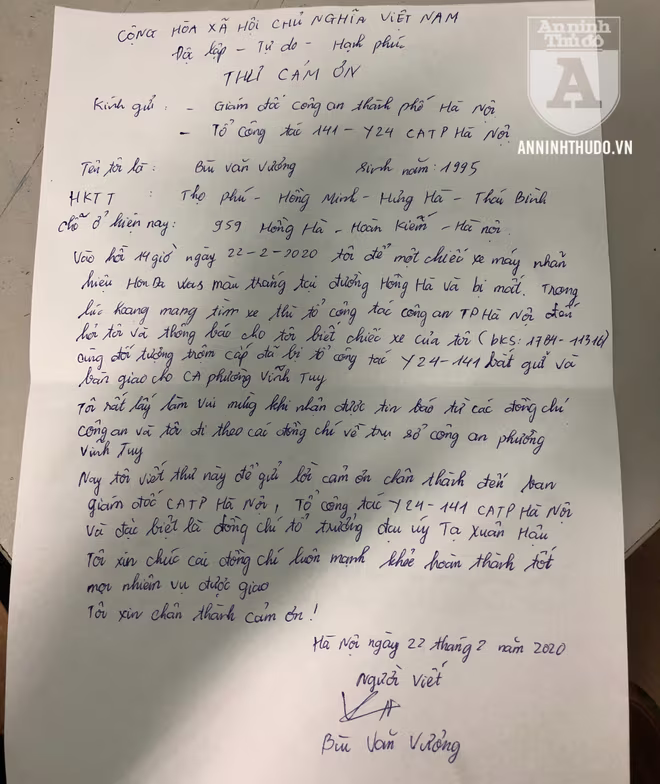 CỘNG HÒA XÃ HỘI CHỦ NGHĨA VIỆT NAM
Độc lập - Tự do - Hạnh phúc
THƯ CẢM ƠN
Kính gửi : - Giám đốc công an thành phố Hà Nội
- Tổ công tác 141 - Y24 CATP Hà Nội
Tên tôi là : Bùi Văn Vương sinh năm : 1995
HKTT : Thọ phú - Hồng Minh - Hưng Hà - Thái Bình
chỗ ở hiện nay : 959 Hồng Hà - Hoàn Kiếm - Hà nội
Vào hồi 14 giờ ngày 22-2-2020 tôi để một chiếc xe máy nhãn
hiệu Honda màu trắng tại đường Hồng Hà và bị mất. Trong
lúc hoang mang tìm xe thì tổ công tác công an TP Hà Nội đến
hỏi tôi và thông báo cho tôi biết chiếc xe của tôi (BKS:
cùng đối tượng trộm cắp đã bị tổ công tác Y24-141 bắt giữ và
bàn giao cho CA phường Vĩnh Tuy
Tôi rất lấy làm vui mừng khi nhận được tin báo từ các đồng chí
công an và tôi đi theo các đồng chí về trụ sở công an phường
Vĩnh Tuy
Nay tôi viết thư này để gửi lời cảm ơn chân thành đến ban
giám đốc CATP Hà Nội, Tổ công tác Y24-141 CATP Hà Nội
Và đặc biệt là đồng chí tổ trưởng đại úy Tạ Xuân Hậu
Tôi xin chúc các đồng chí luôn mạnh khỏe hoàn thành tốt
mọi nhiệm vụ được giao
Tôi xin chân thành cảm ơn !
Hà Nội ngày 22 tháng 2 năm 2020
Người viết
Bùi Văn Vương
An ninh
Thủ đô
A
ANNINHTHUDO.VN